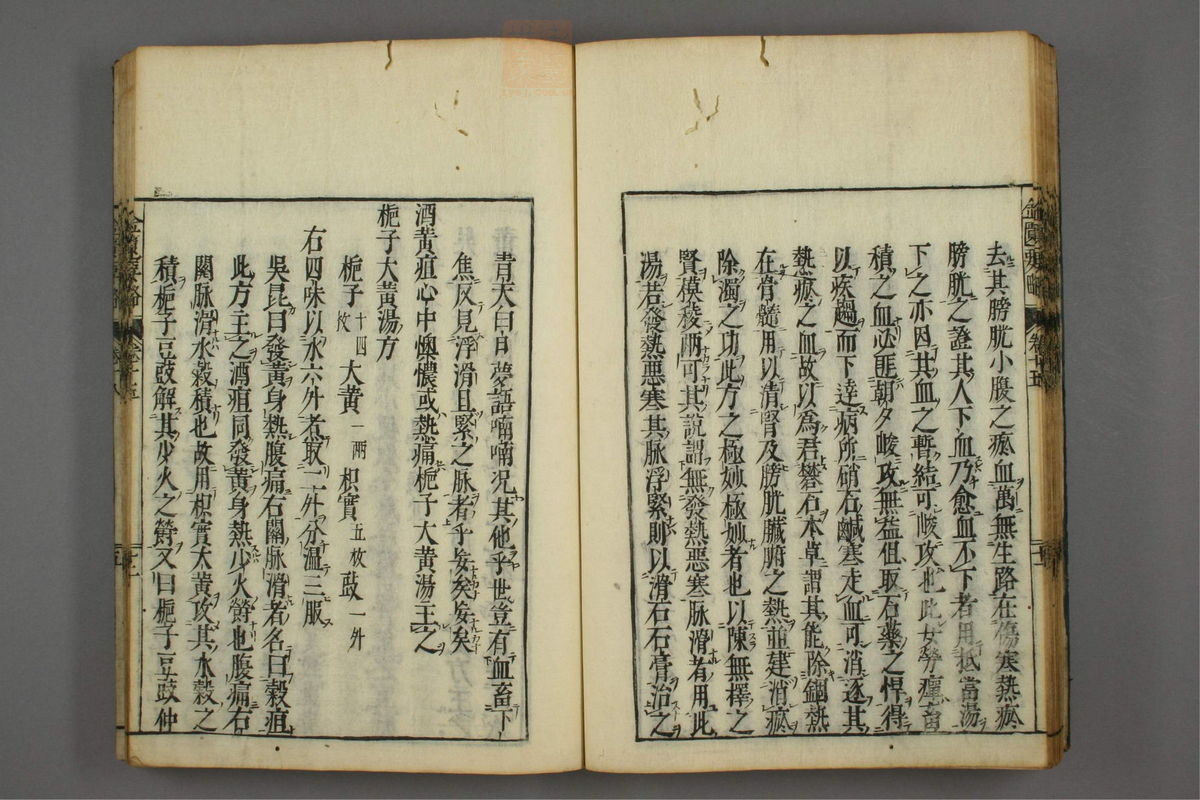 去其膀胱小腹之瘀血萬無生路在傷寒熱瘀
膀胱之證其人下血乃愈血不下者用抵當湯
下之亦因其血之暫結可峻攻也此女勞癉畜
積之血必匪朝夕峻攻無益但取石藥之悍得
以疾趨而下達病所硝石鹹寒走血可消逐其
熱瘀之血故以為君礬石本草謂其能除錮熱
在骨髓用以清腎及膀胱臟腑之熱並建消瘀
除濁之功此方之極妙極妙者也以陳無擇之
賢模稜兩可其說謂無發熱惡寒脉滑者用此
湯若發熱惡寒其脉浮緊則以滑石石膏治之
青天白日夢語喃喃況其他乎世豈有血畜下
焦反見浮滑且緊之脉者乎妄矣妄矣
酒黃疸心中懊憹或熱痛梔子大黃湯主之
梔子大黃湯方
梔子十四枚 大黃一兩 枳實五枚 豉一升
右四味以水六升煮取二升分溫三服
吳昆曰發黃身熱腹痛右關脉滑者名曰穀疸
此方主之酒疸同發黃身熱少火鬱也腹痛右
關脉滑水穀積也故用枳實大黃攻其水穀之
積梔子豆豉解其少火之鬱又曰梔子豆豉仲